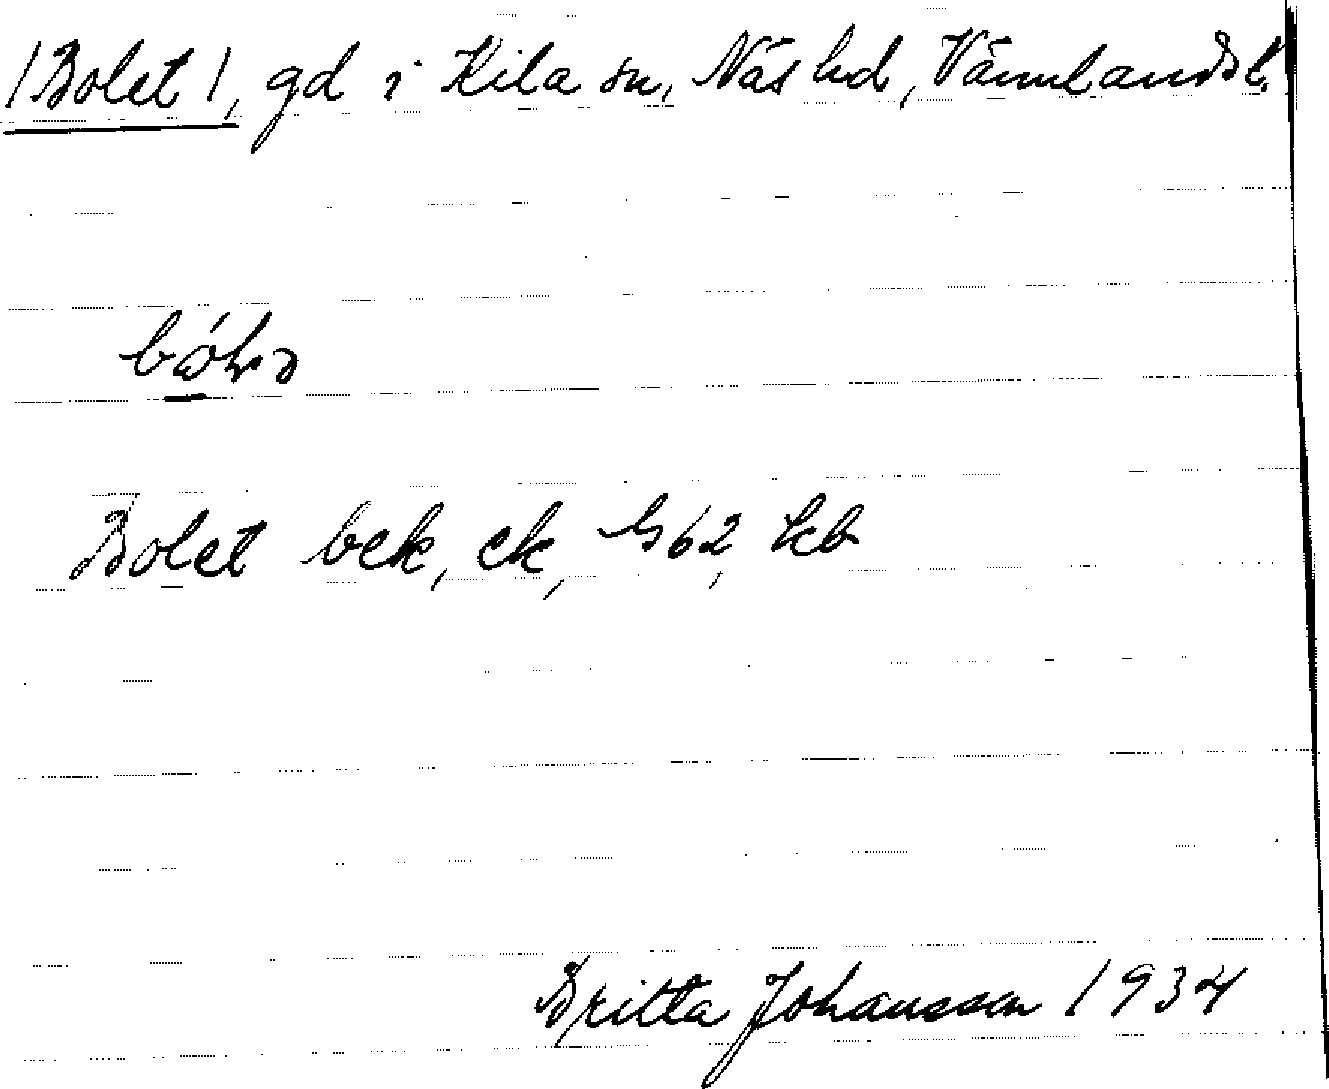 /Bolet/, gd i Kila sn, Näs hd, Värmlands l.
Bolet bek, ek, kb
Britta Johansson 1934